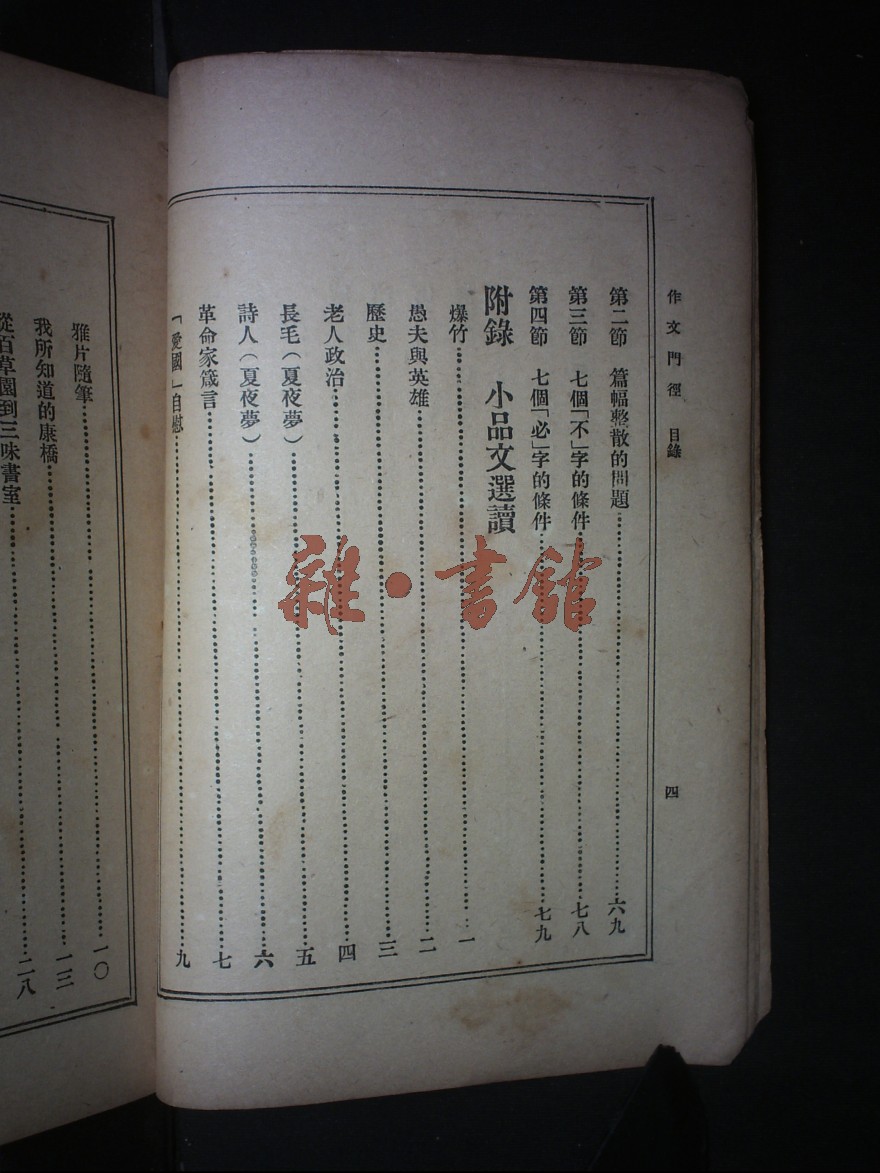 作文門徑 目錄 四
第二節 篇幅整散的問題⋯⋯六九
第三節 七個「不」字的條件⋯⋯七八
第四節 七個「必」字的條件⋯⋯七九
附錄 小品文選讀
爆竹⋯⋯一
愚夫與英雄⋯⋯二
歷史⋯⋯三
老人政治⋯⋯四
長毛(夏夜夢)⋯⋯五
詩人(夏夜夢)⋯⋯六
革命家箴言⋯⋯七
「愛國」自慰⋯⋯九
雅片隨筆⋯⋯一〇
我所知道的康橋⋯⋯一三
從百草園到三味書室⋯⋯二八
雜·書館